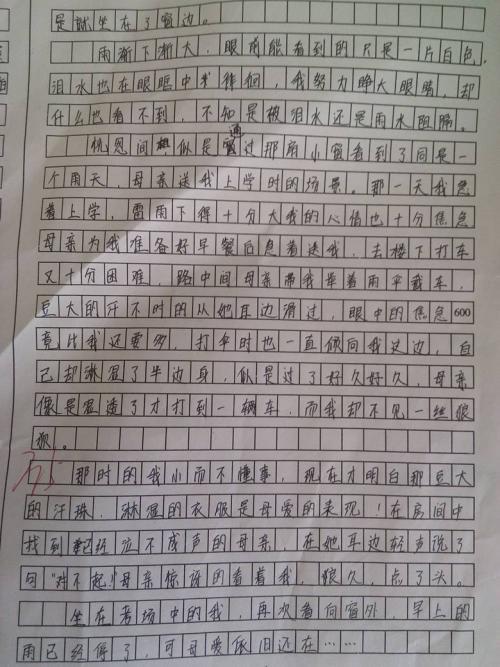 是就坐在了窗边。
雨渐下渐大,眼前能看到的只是一片白色,
泪水也在眼眶中徘徊,我努力睁大眼睛,却
什么也看不到,不知是被泪水还是雨水阻隔。
恍惚间似是透过那扇小窗看到了同是一
个雨天,母亲送我上学时的场景。那一天我急
着上学,雷雨下得十分大我的心情也十分焦急
母亲为我准备好早餐后急着送我,去楼下打车
又十分困难,路中间母亲带我举着雨伞截车,
豆大的汗不时的从她耳边滑过,眼中的焦急
600
竟比我还要多,打伞时也一直倾向我这边,自
己却淋湿了半边身,似是过了好久好久,母亲
像是湿透了才打到一辆车,而我却不见一丝狼
狈。
那时的我小而不懂事,现在才明白那豆大
的汗珠,淋湿的衣服是母爱的表现!在房间中
找到已经泣不成声的母亲,在她耳边轻声说了
句“对不起!”母亲惊讶的看着我,很久,点了头。
坐在考场中的我,再次看向窗外,早上的
雨已经停了,可母爱依旧还在……